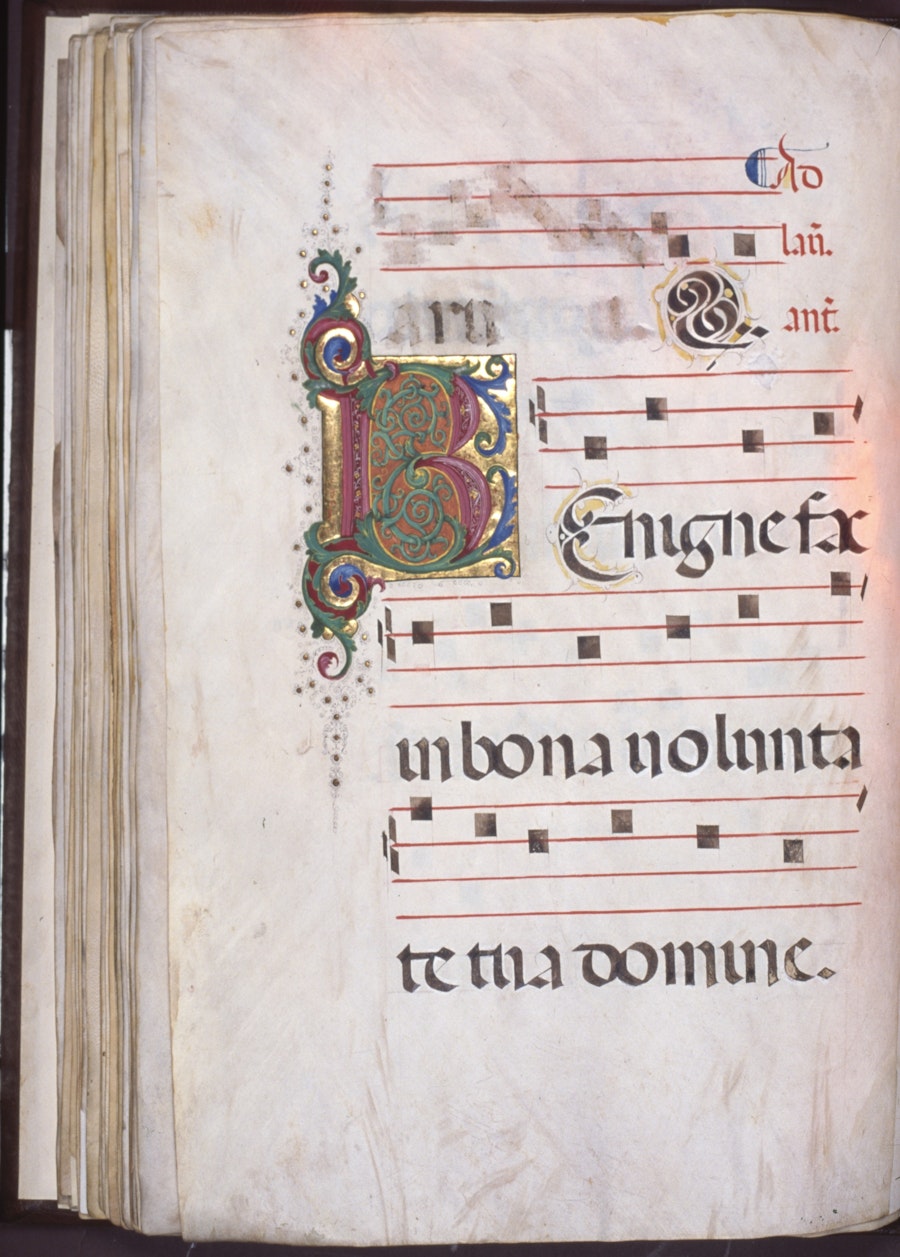 Ad
laū.
ant̄.
BEnigne fac
in bona uolunta
te tua domine.